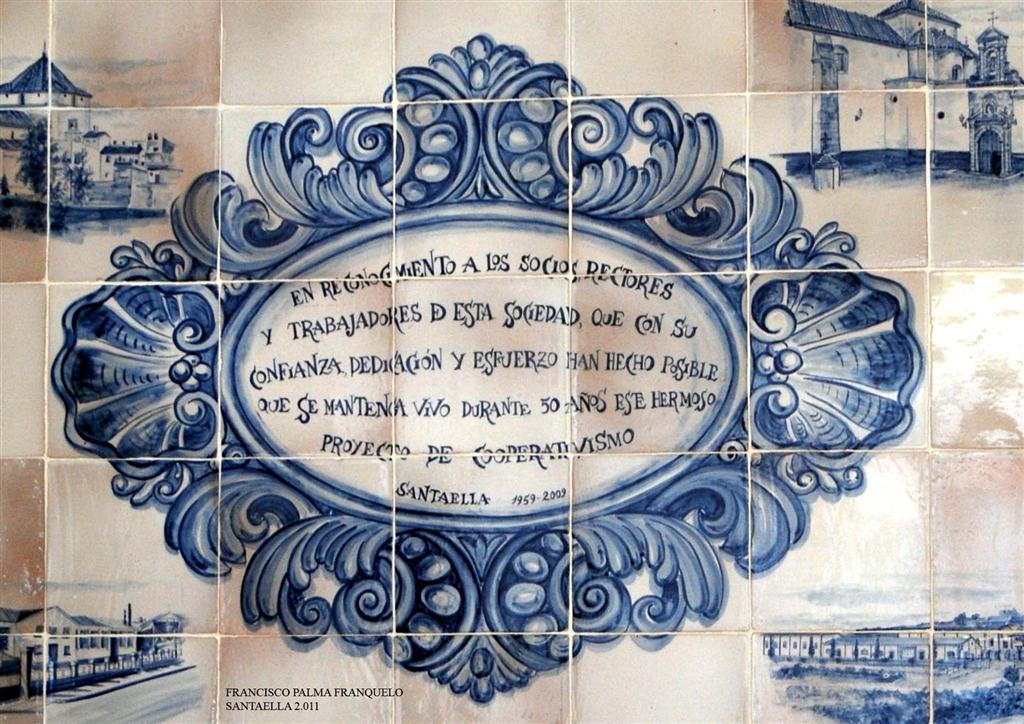 EN RECONOCIMIENTO A LOS SOCIOS, RECTORES
Y TRABAJADORES D ESTA SOCIEDAD, QUE CON SU
CONFIANZA, DEDICACIÓN Y ESFUERZO HAN HECHO POSIBLE
QUE SE MANTENGA VIVO DURANTE 50 AÑOS ESTE HERMOSO
PROYECTO DE COOPERATIVISMO
SANTAELLA 1959-2009
FRANCISCO PALMA FRANQUELO
SANTAELLA 2.011